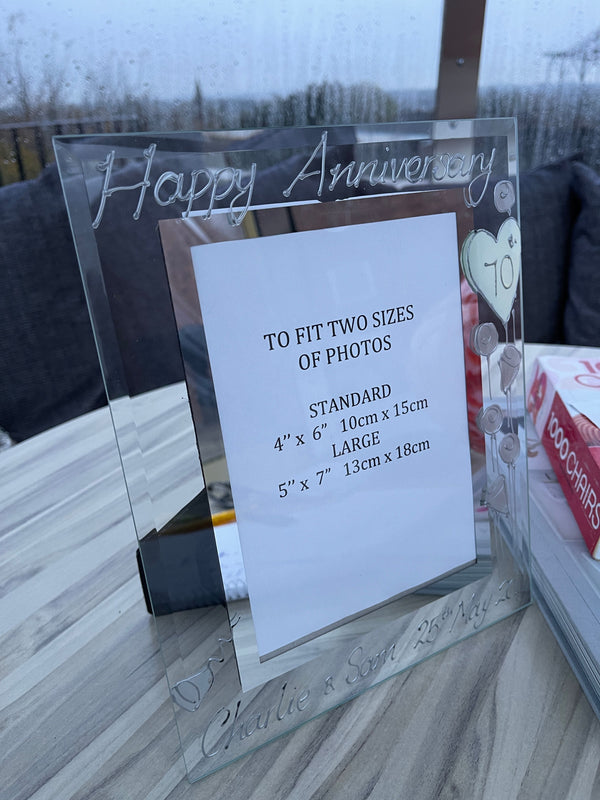 Happy Anniversary
70
TO FIT TWO SIZES
OF PHOTOS
STANDARD
4” x 6” 10cm x 15cm
LARGE
5” x 7” 13cm x 18cm
Charlie & Sam / 25th May
1000 CHAIRS